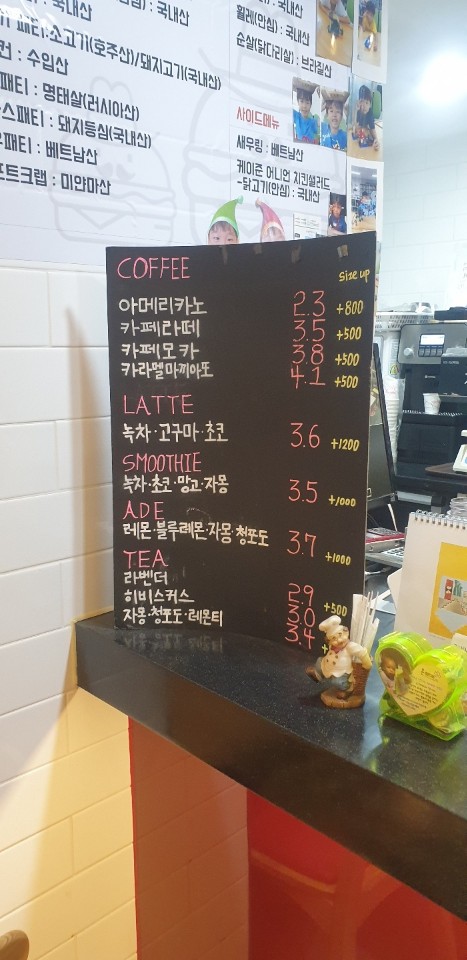 : 국내산
패티:소고기(호주산)/돼지고기(국내산)
: 수입산
패티 : 명태살(러시아산)
스패티 : 돼지등심(국내산)
패티 : 베트남산
프트크랩 : 미얀마산
: 국내산
휠레(안심) : 국내산
순살(닭다리살) : 브라질산
사이드메뉴
새우링 : 베트남산
케이준 어니언 치킨샐러드
-닭고기(안심) : 국내산
COFFEE
size up
아메리카노 2.3 +800
카페라떼 3.5 +500
카페모카 3.8 +500
카라멜마끼아또 4.1 +500
LATTE
녹차·고구마·초코 3.6 +1200
SMOOTHIE
녹차·초코·망고·자몽 3.5 +1000
ADE
레몬·블루레몬·자몽·청포도 3.7 +1000
TEA
라벤더 2.9
히비스커스 3.0 +500
자몽·청포도·레몬티 3.4